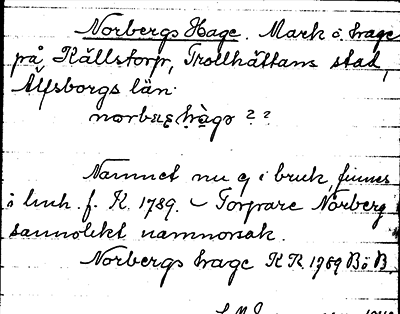 Norbergs Hage. Mark o. hage
på Källstorp, Trollhättans stad,
Älfsborgs län.
Namnet nu ej i bruk, finnes
i huh. f. K. 1789. – Torpare Norberg
sannolikt namnorsak.
Norbergs hage K R. 1789 BiB